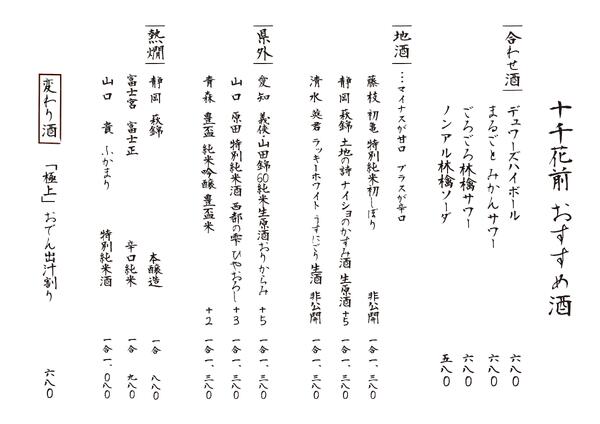 十千花前 おすすめ酒
合わせ酒
デュワーズハイボール 六八〇
まるごとみかんサワー 六八〇
ごろごろ林檎サワー 六八〇
ノンアル林檎ソーダ 五八〇
地酒
…マイナスが甘口 プラスが辛口
藤枝 初亀 特別純米初しぼり 非公開 一合一、三八〇
静岡 萩錦 土地の詩 ナイショのかすみ酒 生原酒 +5 一合一、三八〇
清水 英君 ラッキーホワイト うすにごり 生酒 非公開 一合一、三八〇
県外
愛知 義侠・山田錦60純米生原酒おりがらみ +5 一合一、三八〇
山口 原田 特別純米酒 西都の雫 ひやおろし +3 一合一、三八〇
青森 豊盃 純米吟醸 豊盃米 +2 一合一、三八〇
熱燗
静岡 萩錦 本醸造 一合 八八〇
富士宮 富士正 辛口純米 一合 九八〇
山口 貴 ふかまり 特別純米酒 一合一、〇八〇
変わり酒
「極上」おでん出汁割り 六八〇